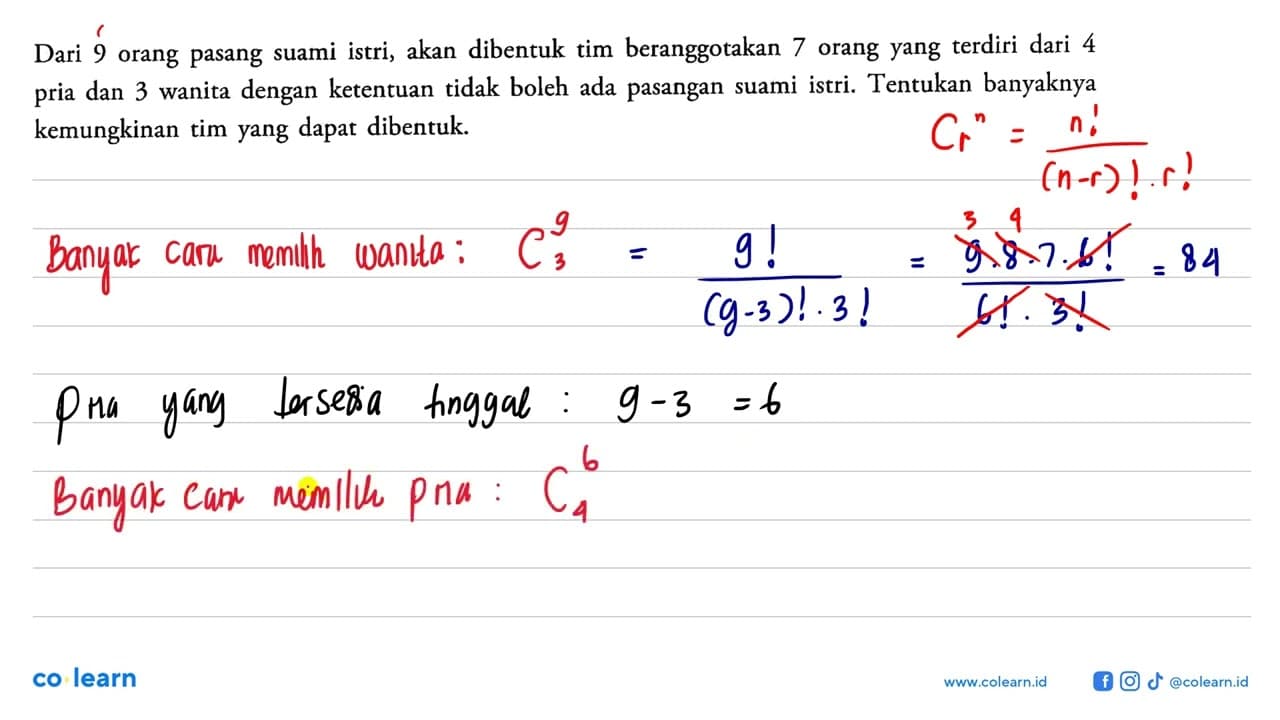 Dari 9 orang pasang suami istri, akan dibentuk tim beranggotakan 7 orang yang terdiri dari 4
pria dan 3 wanita dengan ketentuan tidak boleh ada pasangan suami istri. Tentukan banyaknya
kemungkinan tim yang dapat dibentuk.
Crⁿ = n! / (n-r)! . r!
Banyak cara memilih wanita : C₃⁹ = 9! / (9-3)! . 3! = 9.8.7.6! / 6! . 3! = 84
3 4
Pria yang tersedia tinggal : 9 - 3 = 6
Banyak cara memilih pria : C₄⁶
co learn
www.colearn.id @colearn.id